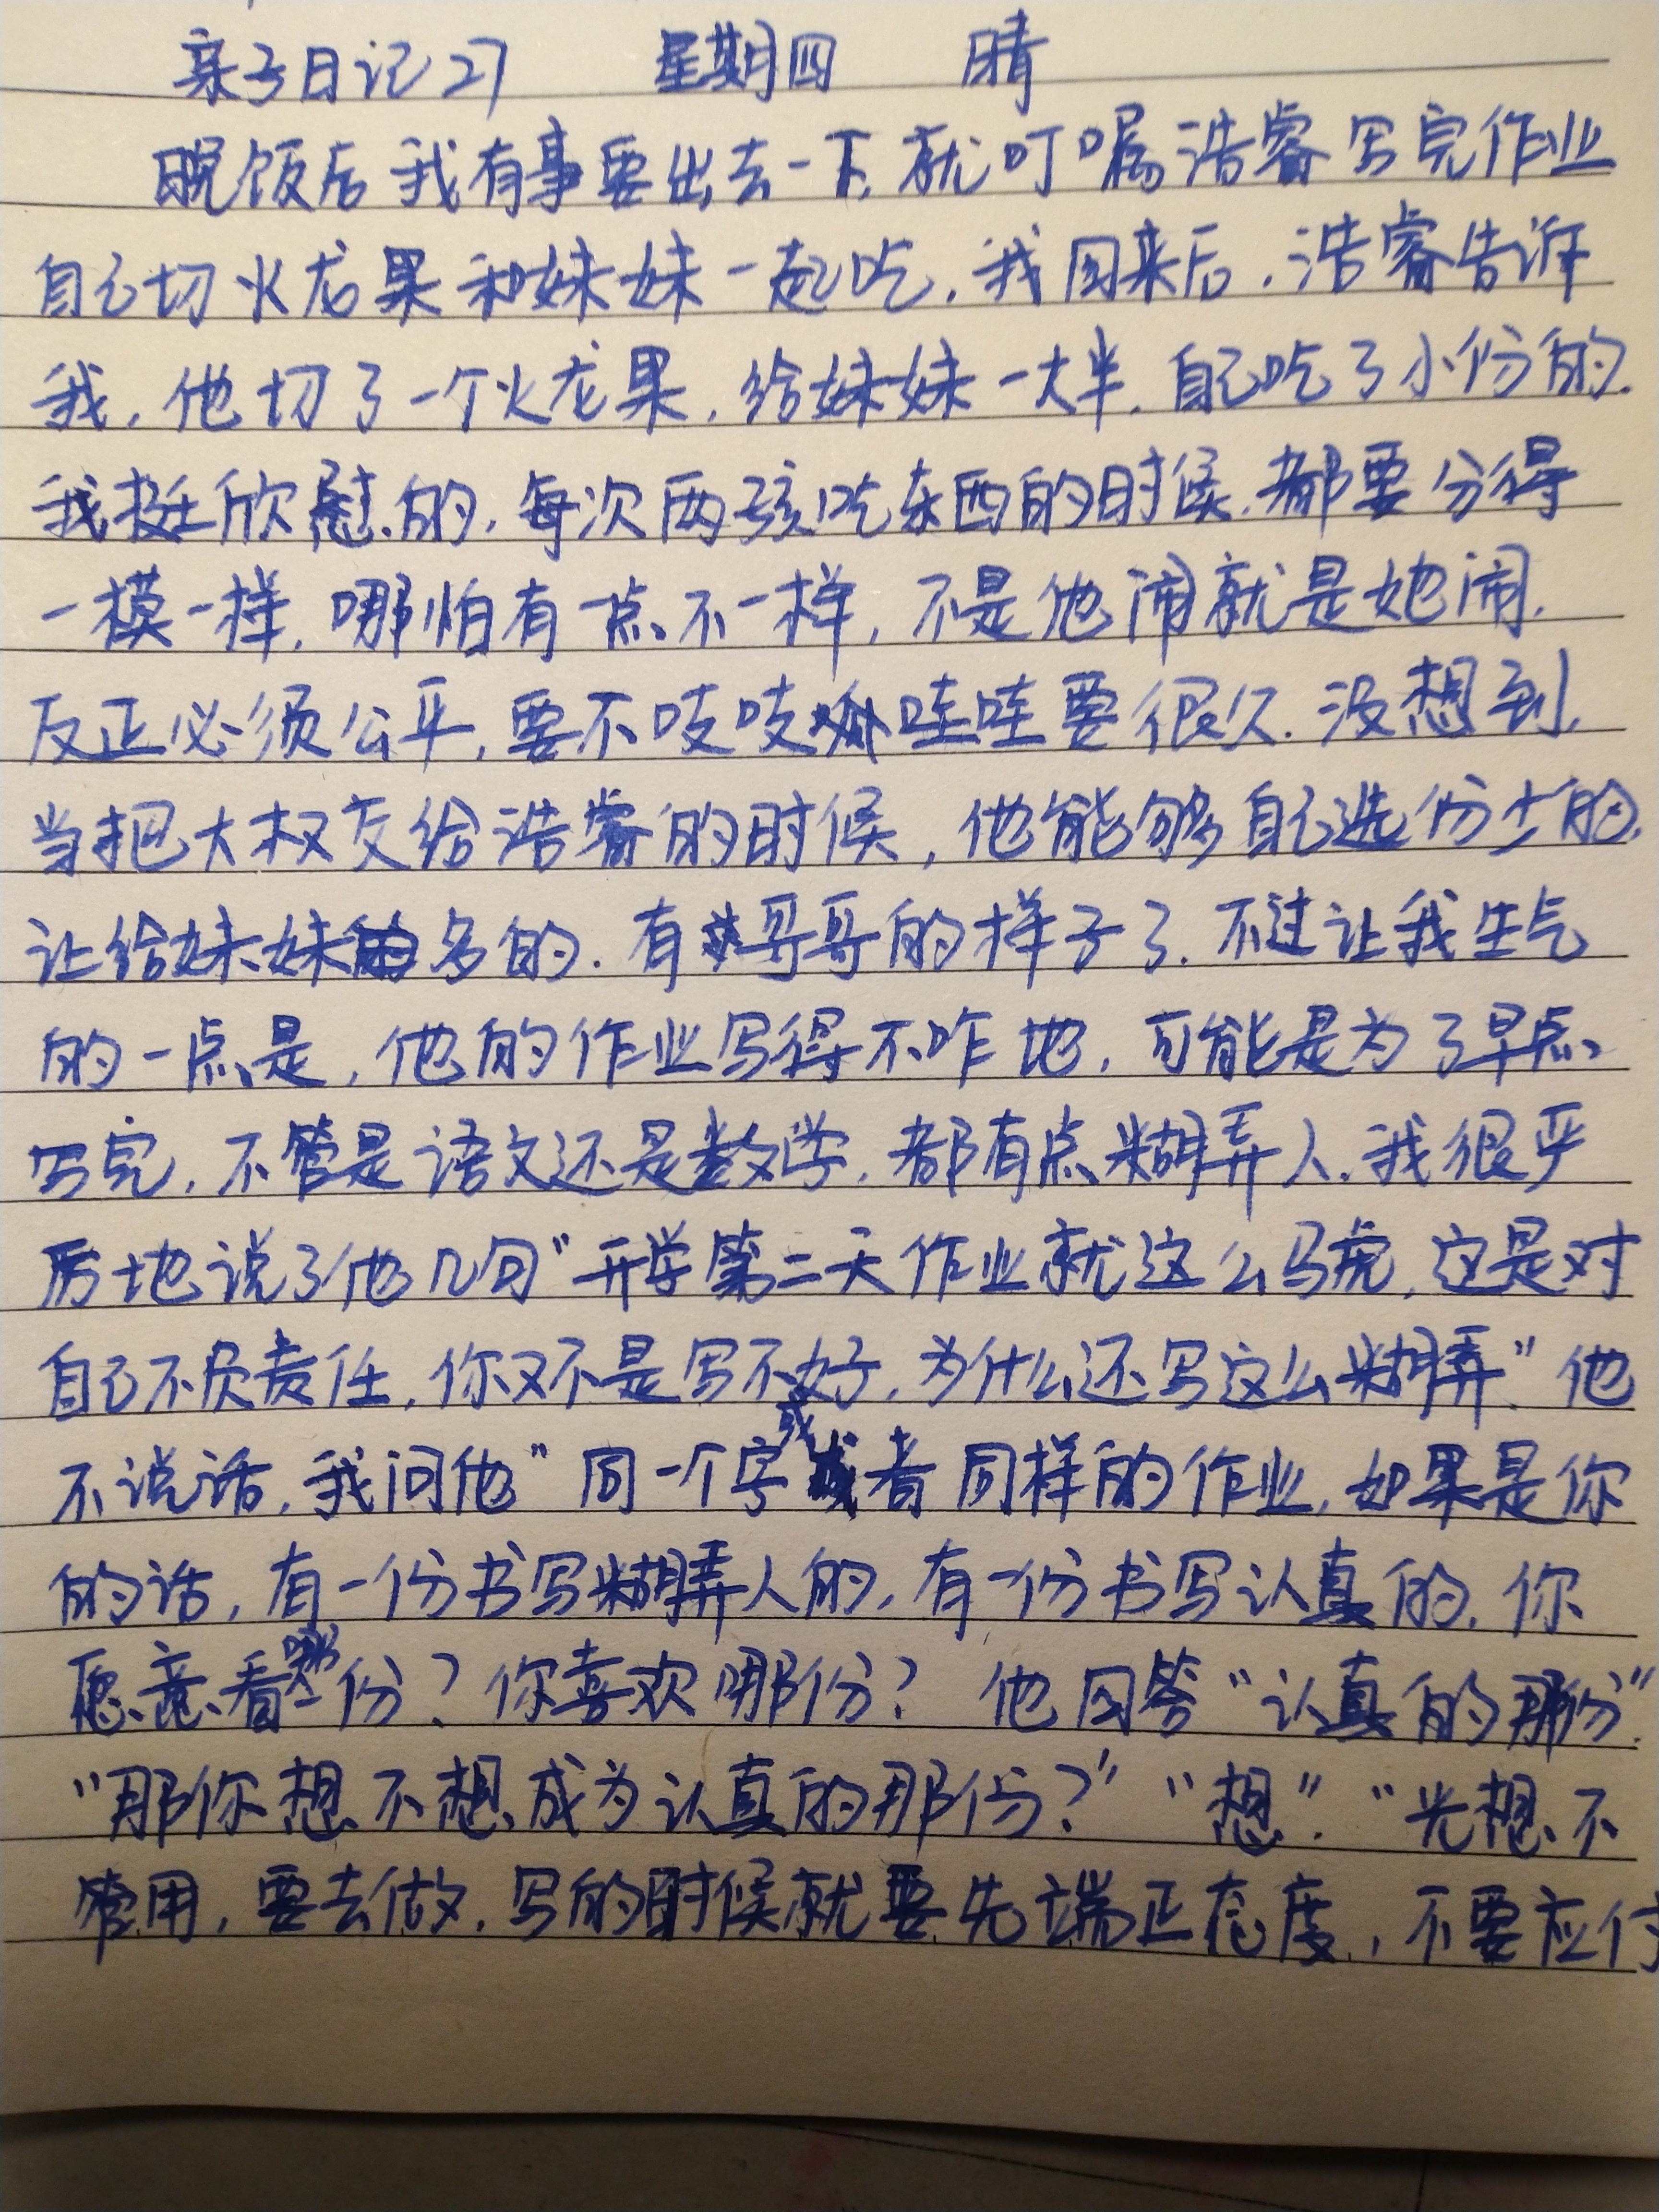 亲子日记27 星期四 晴
晚饭后我有事要出去一下,就叮嘱浩睿写完作业
自己切火龙果和妹妹一起吃,我回来后,浩睿告诉
我,他切了一个火龙果,给妹妹一大半,自己吃了小份的.
我挺欣慰的,每次两孩吃东西的时候,都要分得
一模一样,哪怕有一点不一样,不是他闹就是她闹.
反正必须公平,要不吱吱哇哇要很久.没想到,
当把大权交给浩睿的时候,他能够自己选份少的,
让给妹妹多的.有哥哥的样子了.不过让我生气
的一点是,他的作业写得不咋地,可能是为了早点
写完,不管是语文还是数学,都有点糊弄人.我很严
厉地说了他几句"开学第二天作业就这么马虎,这是对
自己不负责任,你又不是写不好,为什么还写这么糊弄"他
不说话,我问他"同一个字或者同样的作业,如果是你
的话,有一份书写糊弄人的,有一份书写认真的,你
愿意看哪份?你喜欢哪份? 他回答"认真的那份".
"那你想不想成为认真的那份?" "想"."光想不
管用,要去做,写的时候就要先端正态度,不要应付